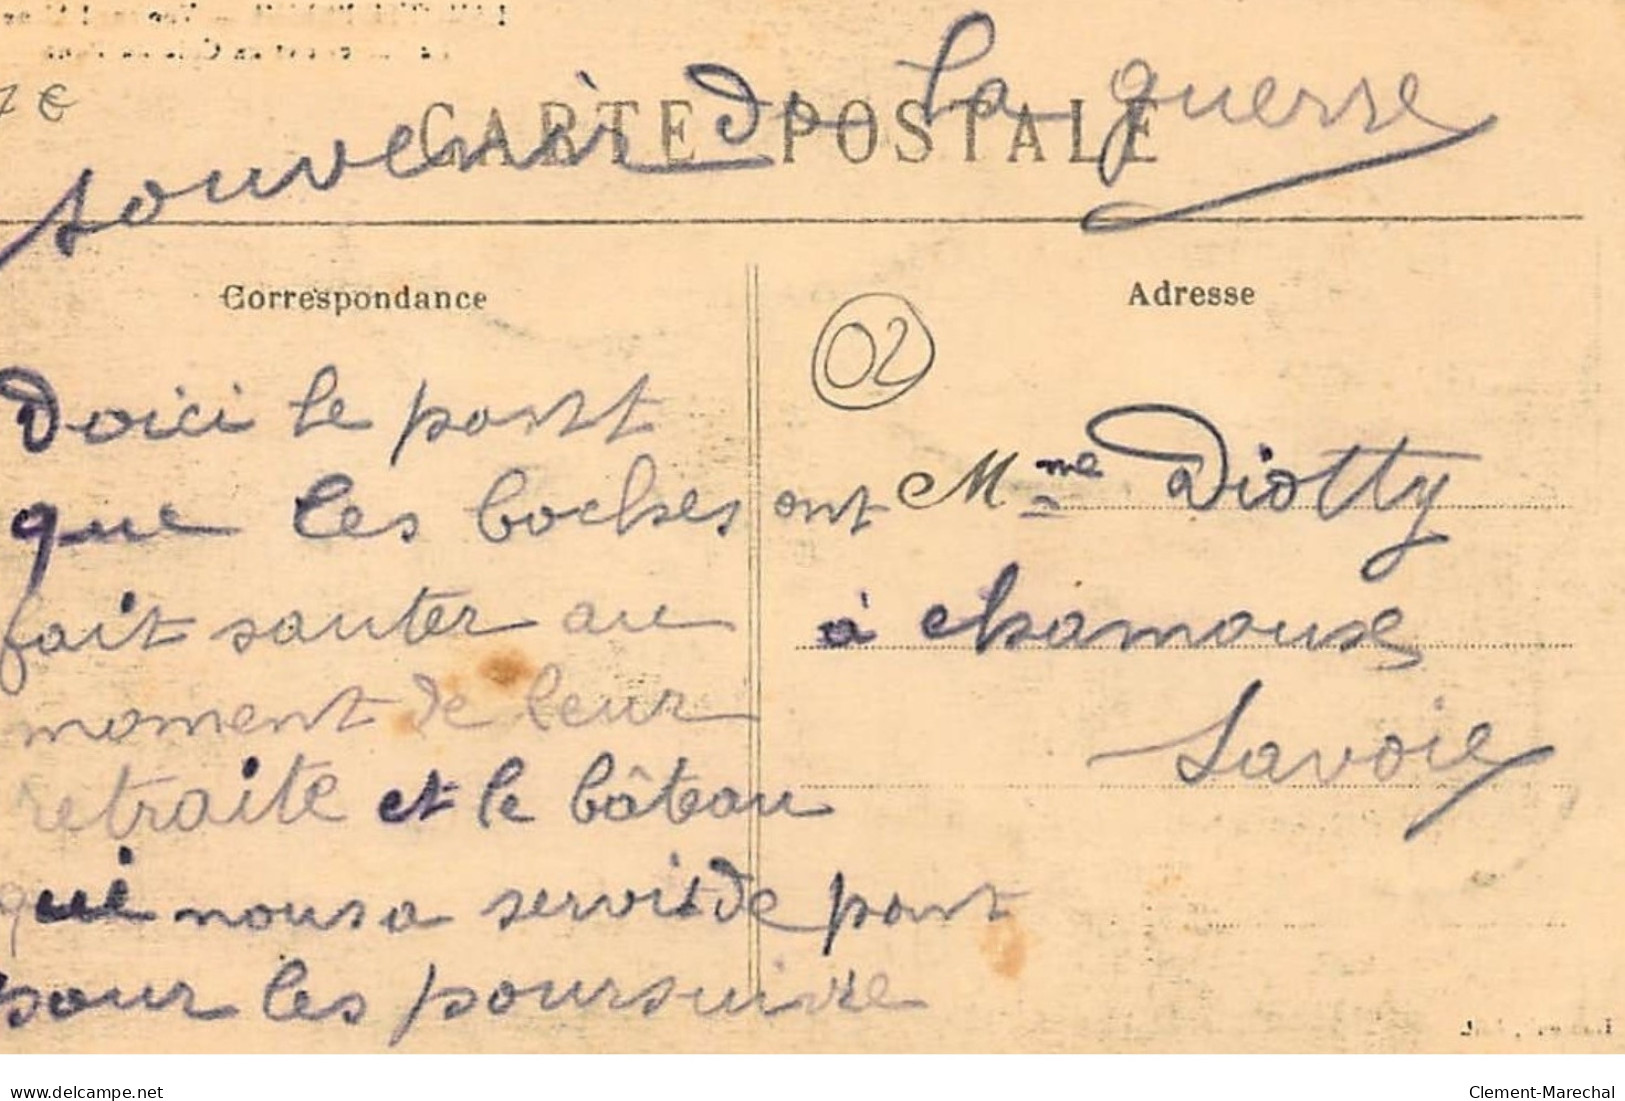 7 €
CARTE POSTALE
souvenir de la guerre
Correspondance
Adresse
02
Voici le pont
que les boches ont
fait sauter au
moment de leur
retraite et le bâteau
qui nous a servit de pont
pour les poursuivre
Mme Diotty
à chamoux
Savoie
delcampe.net
Clement-Marechal